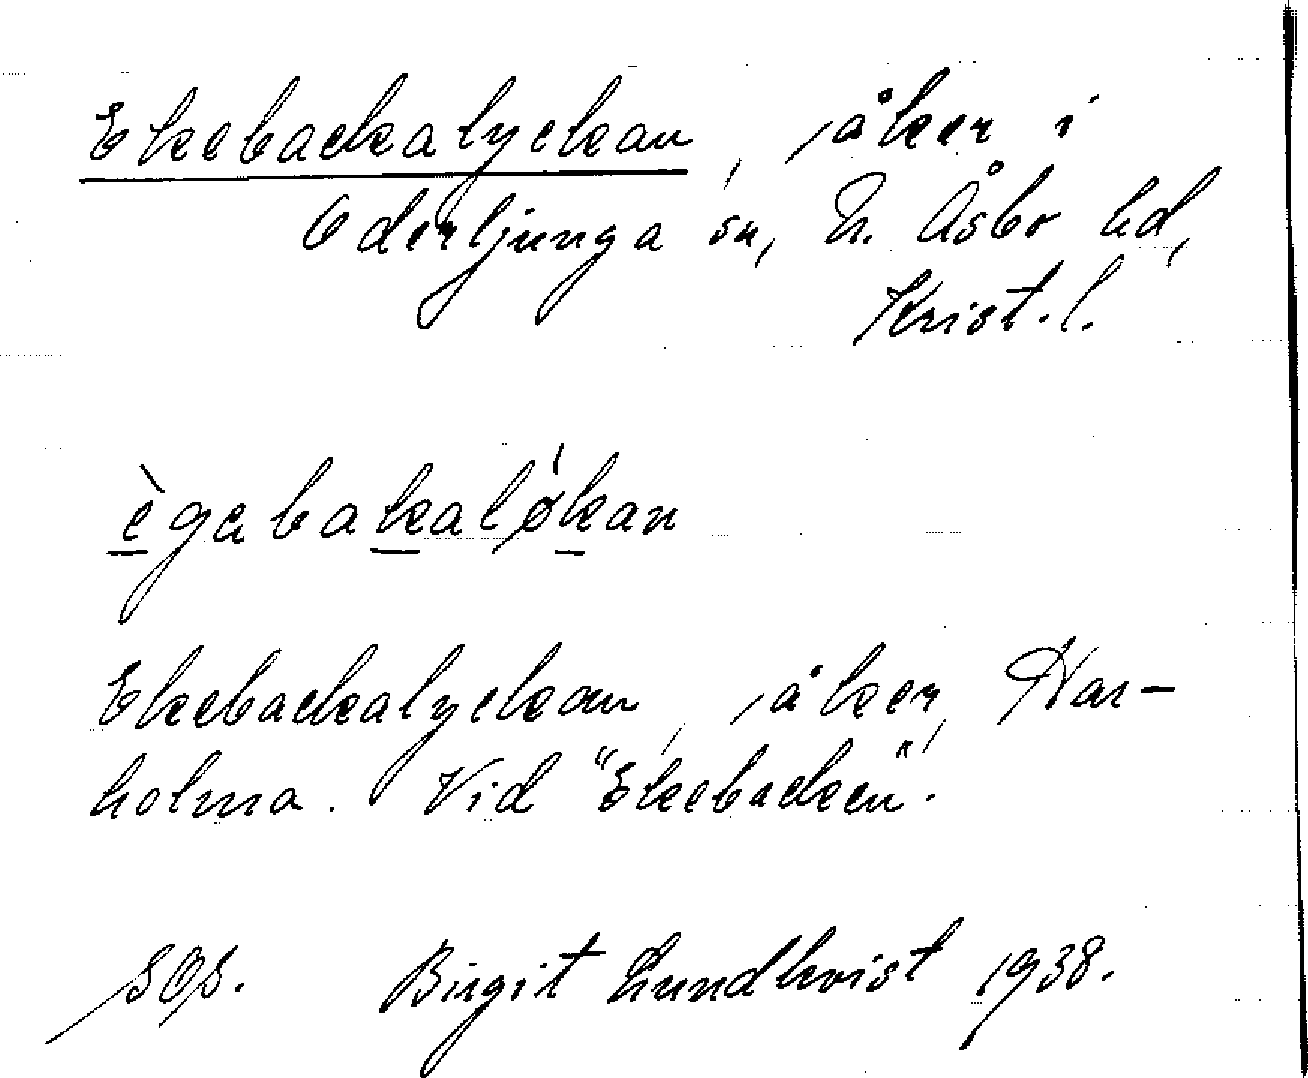 Ekebackalyckan, åker i
Oderljunga sn, N. Åsbo hd,
Krist. l.
ègabakalø̍kan
Ekebackalyckan, åker, Har-
holma. Vid "Ekebacken".
SOS. Birgit Lundkvist 1938.